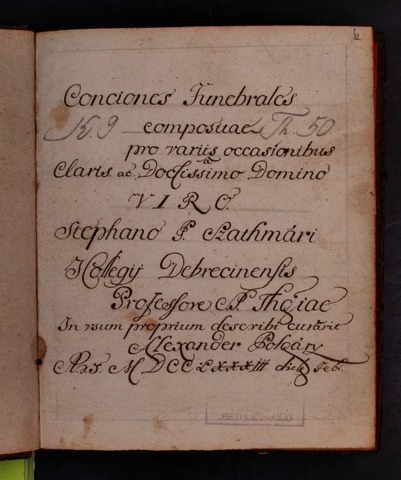 Conciones Funebrales
K. 9 compositae Th. 50
pro variis occasionibus
a
Claris ac Doctissimo Domino
VIRO.
Stephano P. Szathmári
Collegij Debrecinensis
Professore P. Th. giae
In usum proprium describi curavit
Alexander
A. MDCCLXXXIII Feb.